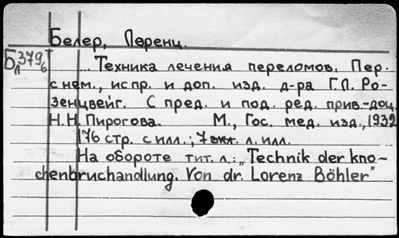 Белер, Лоренц.
Бл 379/6 ... Техника лечения переломов. Пер.
с нем., испр. и доп. изд. д-ра Г.Л. Ро-
зенцвейг. С пред. и под. ред. прив.-доц.
Н.Н. Пирогова. М., Гос. мед. изд., 1932
176 стр. с илл.; л. илл.
На обороте тит. л.: „Technik der kno-
chenbruchandlung. Von dr. Lorenz Böhler"